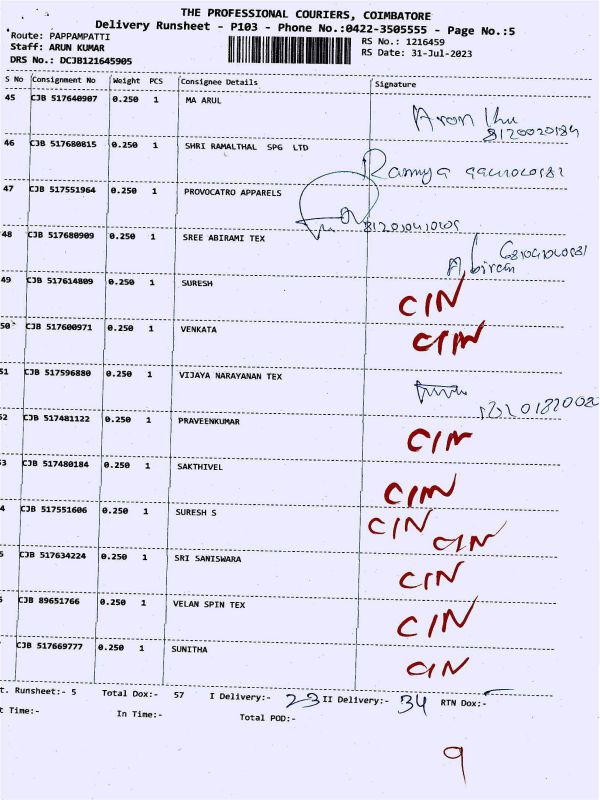 THE PROFESSIONAL COURIERS, COIMBATORE
Delivery Runsheet - P103 - Phone No.:0422-3505555 - Page No.:5
Route: PAPPAMPATTI
RS No.: 1216459
Staff: ARUN KUMAR
RS Date: 31-Jul-2023
DRS No.: DCJB121645905
S No Consignment No Weight PCS Consignee Details Signature
45 CJB 517640907 0.250 1 MA ARUL
46 CJB 517680815 0.250 1 SHRI RAMALTHAL SPG LTD Ramya
47 CJB 517551964 0.250 1 PROVOCATRO APPARELS
48 CJB 517680909 0.250 1 SREE ABIRAMI TEX
49 CJB 517614809 0.250 1 SURESH CIN
50 CJB 517600971 0.250 1 VENKATA CIN
51 CJB 517596880 0.250 1 VIJAYA NARAYANAN TEX
52 CJB 517481122 0.250 1 PRAVEENKUMAR CIN
53 CJB 517480184 0.250 1 SAKTHIVEL CIN
4 CJB 517551606 0.250 1 SURESH S CIN CIN
5 CJB 517634224 0.250 1 SRI SANISWARA CIN
CJB 89651766 0.250 1 VELAN SPIN TEX CIN
CJB 517669777 0.250 1 SUNITHA CIN
t. Runsheet:- 5 Total Dox:- 57 I Delivery:- 23 II Delivery:- 34 RTN Dox:-
t Time:- In Time:- Total POD:-
9